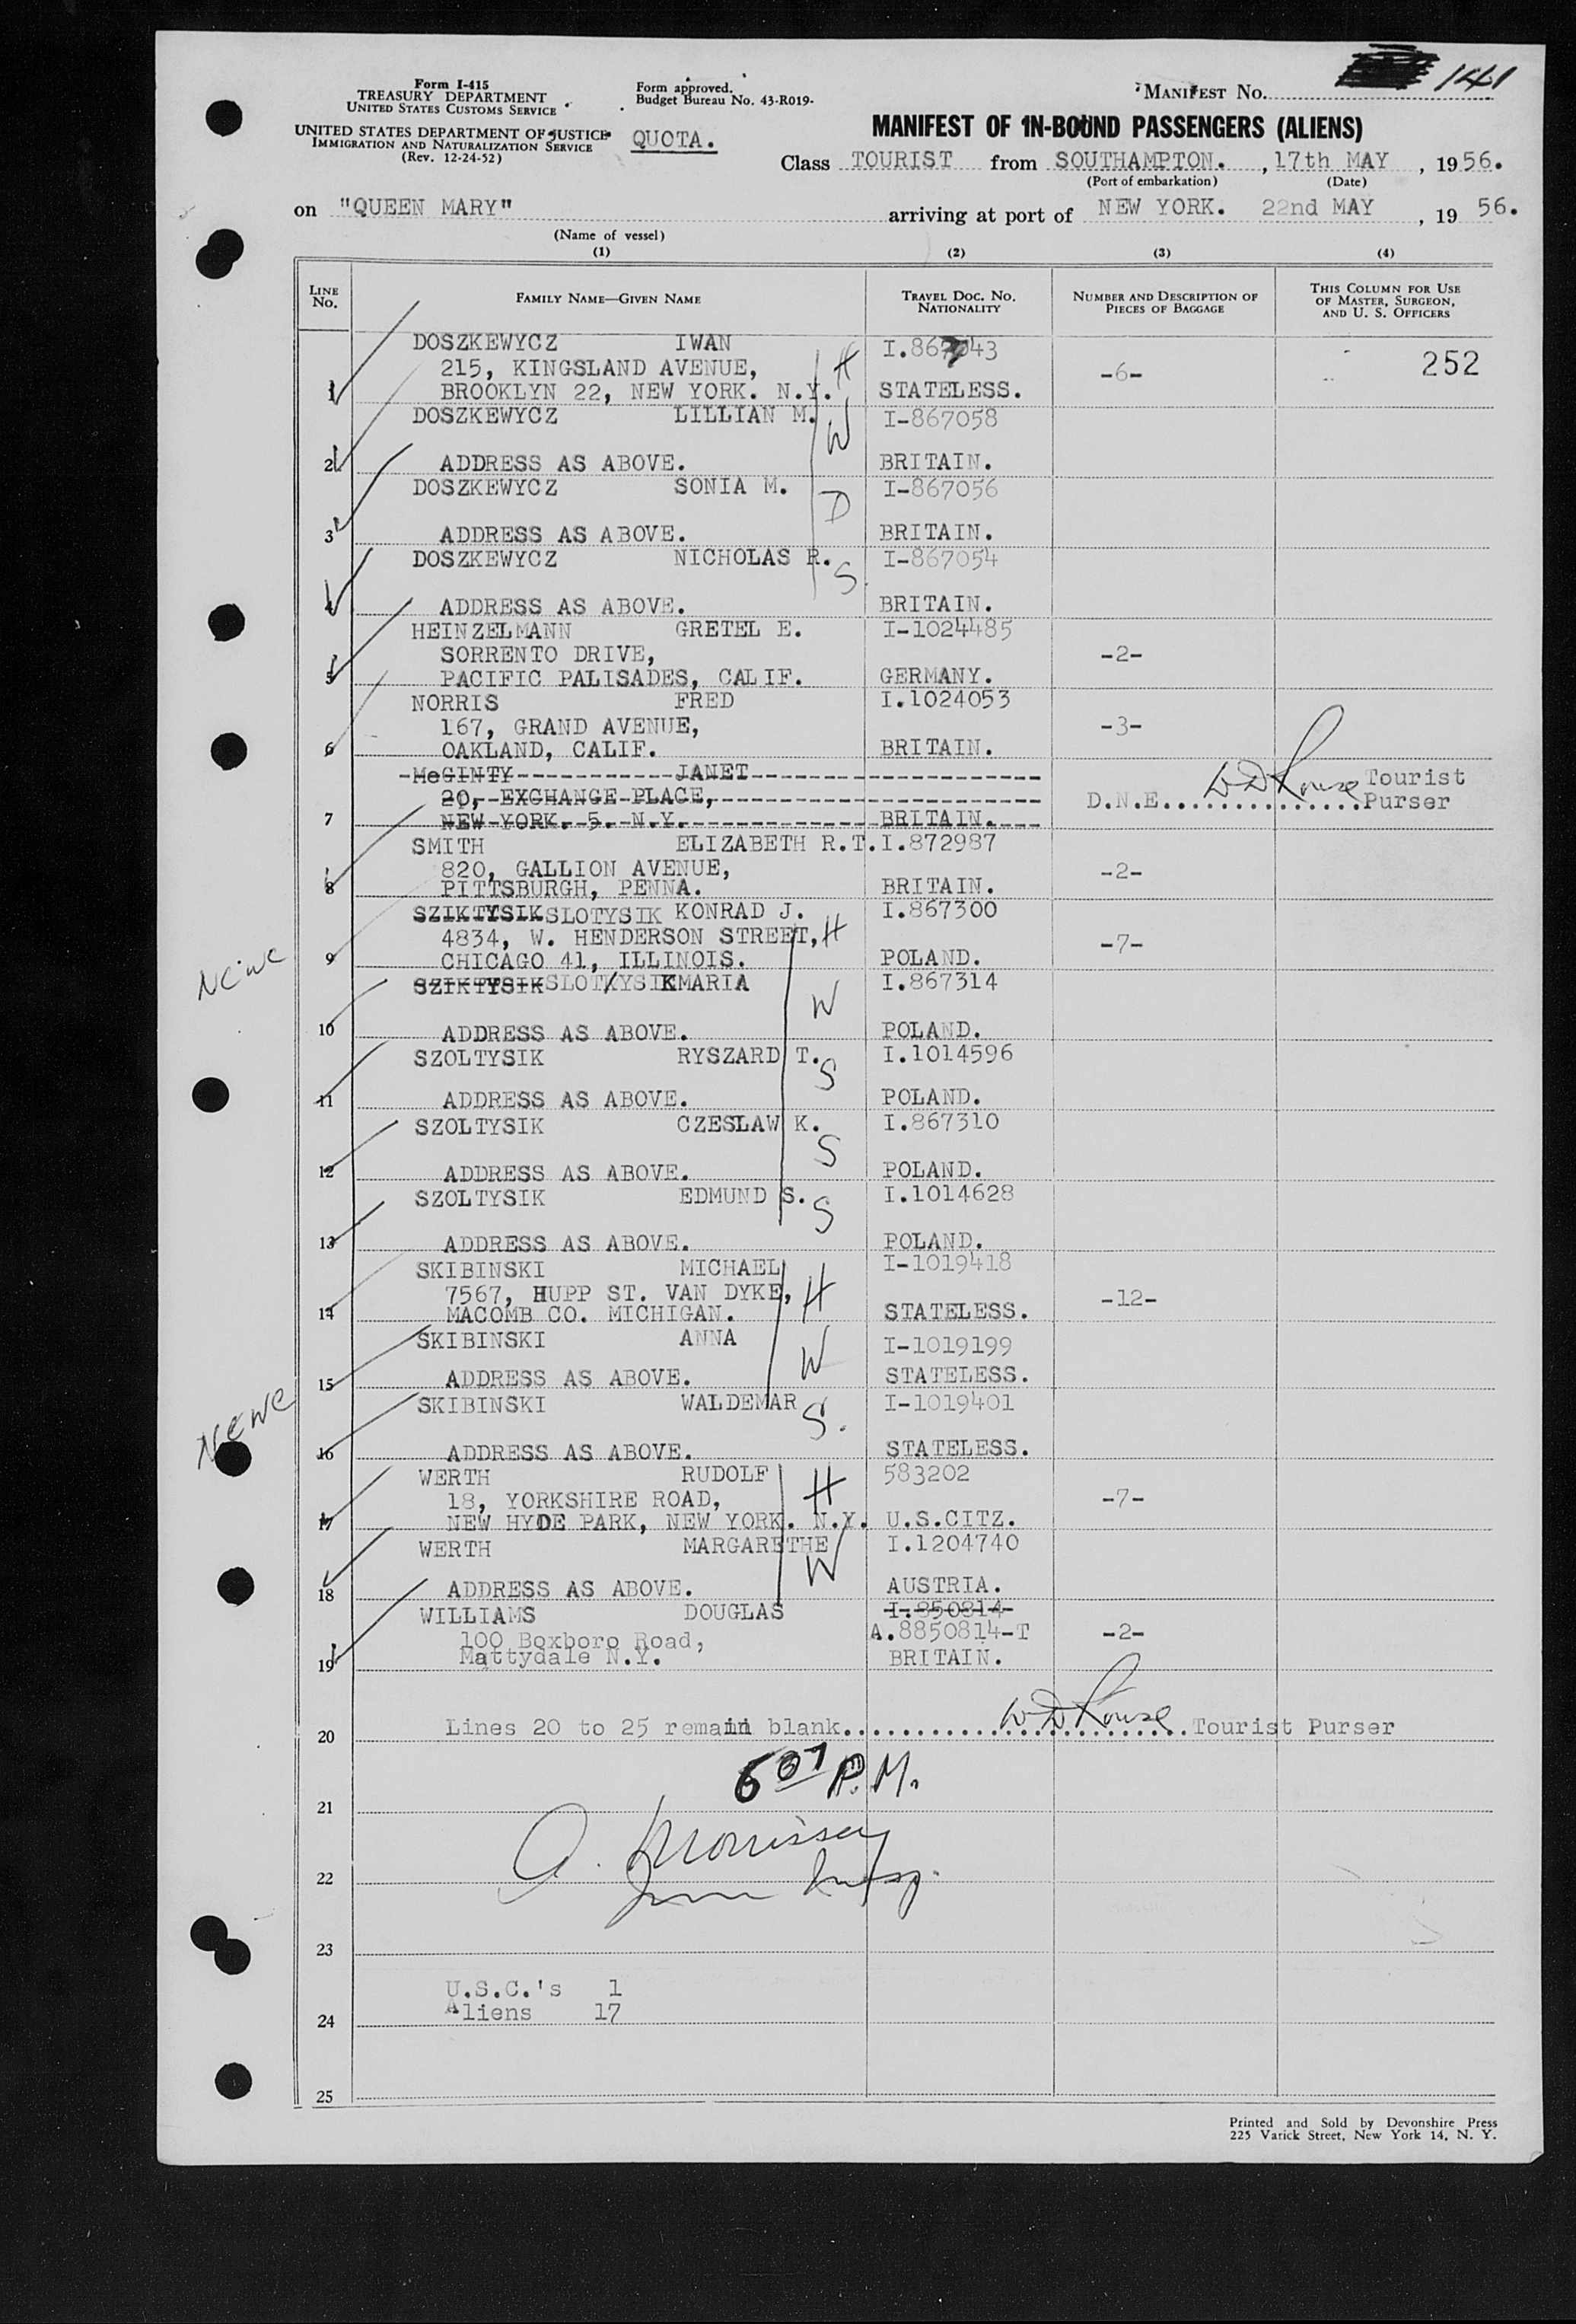 Form I-415
TREASURY DEPARTMENT
UNITED STATES CUSTOMS SERVICE
UNITED STATES DEPARTMENT OF JUSTICE
IMMIGRATION AND NATURALIZATION SERVICE
(Rev. 12-24-52)
Form approved.
Budget Bureau No. 43-R019-
QUOTA.
MANIFEST No. 141
MANIFEST OF IN-BOUND PASSENGERS (ALIENS)
Class TOURIST from SOUTHAMPTON. , 17th MAY , 1956.
(Port of embarkation) (Date)
on "QUEEN MARY" arriving at port of NEW YORK. 22nd MAY , 19 56.
(Name of vessel)
(1) (2) (3) (4)
LINE No. FAMILY NAME—GIVEN NAME TRAVEL DOC. No. NATIONALITY NUMBER AND DESCRIPTION OF PIECES OF BAGGAGE THIS COLUMN FOR USE OF MASTER, SURGEON, AND U. S. OFFICERS
DOSZKEWYCZ IWAN I.867043
215, KINGSLAND AVENUE, H -6- 252
1 BROOKLYN 22, NEW YORK. N.Y. STATELESS.
DOSZKEWYCZ LILLIAN M. W I-867058
2 ADDRESS AS ABOVE. BRITAIN.
DOSZKEWYCZ SONIA M. D I-867056
3 ADDRESS AS ABOVE. BRITAIN.
DOSZKEWYCZ NICHOLAS R. S I-867054
4 ADDRESS AS ABOVE. BRITAIN.
HEINZELMANN GRETEL E. I-1024485
SORRENTO DRIVE, -2-
5 PACIFIC PALISADES, CALIF. GERMANY.
NORRIS FRED I.1024053
167, GRAND AVENUE, -3-
6 OAKLAND, CALIF. BRITAIN.
McGINTY JANET
20, EXCHANGE PLACE, D.N.E. W D Rouse Tourist Purser
7 NEW YORK. 5. N.Y. BRITAIN.
SMITH ELIZABETH R.T. I.872987
820, GALLION AVENUE, -2-
8 PITTSBURGH, PENNA. BRITAIN.
SZIKTYSIK SLOTYSIK KONRAD J. I.867300
4834, W. HENDERSON STREET, H -7-
9 CHICAGO 41, ILLINOIS. POLAND.
SZIKTYSIK SLOTYSIK MARIA I.867314
W
10 ADDRESS AS ABOVE. POLAND.
SZOLTYSIK RYSZARD T. S I.1014596
11 ADDRESS AS ABOVE. POLAND.
SZOLTYSIK CZESLAW K. S I.867310
12 ADDRESS AS ABOVE. POLAND.
SZOLTYSIK EDMUND S. S I.1014628
13 ADDRESS AS ABOVE. POLAND.
SKIBINSKI MICHAEL I-1019418
7567, HUPP ST. VAN DYKE, H -12-
14 MACOMB CO. MICHIGAN. STATELESS.
SKIBINSKI ANNA W I-1019199
15 ADDRESS AS ABOVE. STATELESS.
SKIBINSKI WALDEMAR S. I-1019401
16 ADDRESS AS ABOVE. STATELESS.
WERTH RUDOLF H 583202
18, YORKSHIRE ROAD, -7-
17 NEW HYDE PARK, NEW YORK. N.Y. U.S.CITZ.
WERTH MARGARETHE W I.1204740
18 ADDRESS AS ABOVE. AUSTRIA.
WILLIAMS DOUGLAS I.850814
100 Boxboro Road, A.8850814-T -2-
19 Mattydale N.Y. BRITAIN.
20 Lines 20 to 25 remain blank. W D Rouse Tourist Purser
6 07 P.M.
21
A. Morrissey
22 Imm Insp.
23
U.S.C.'s 1
24 Aliens 17
25
Printed and Sold by Devonshire Press
225 Varick Street, New York 14, N. Y.